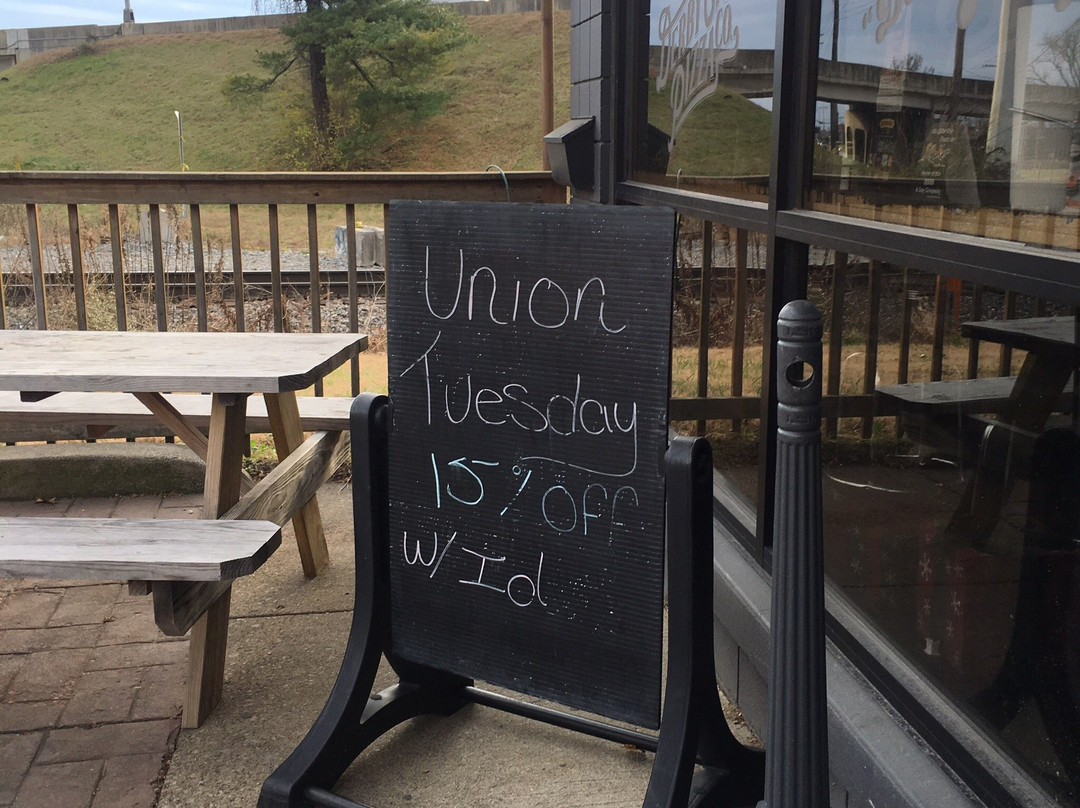 Union
Tuesday
15% Off
w/ Id